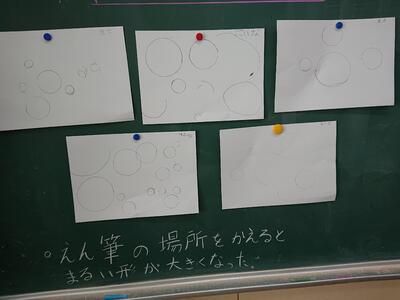 。えん筆の場所をかえると
まるい形が大きくなった。